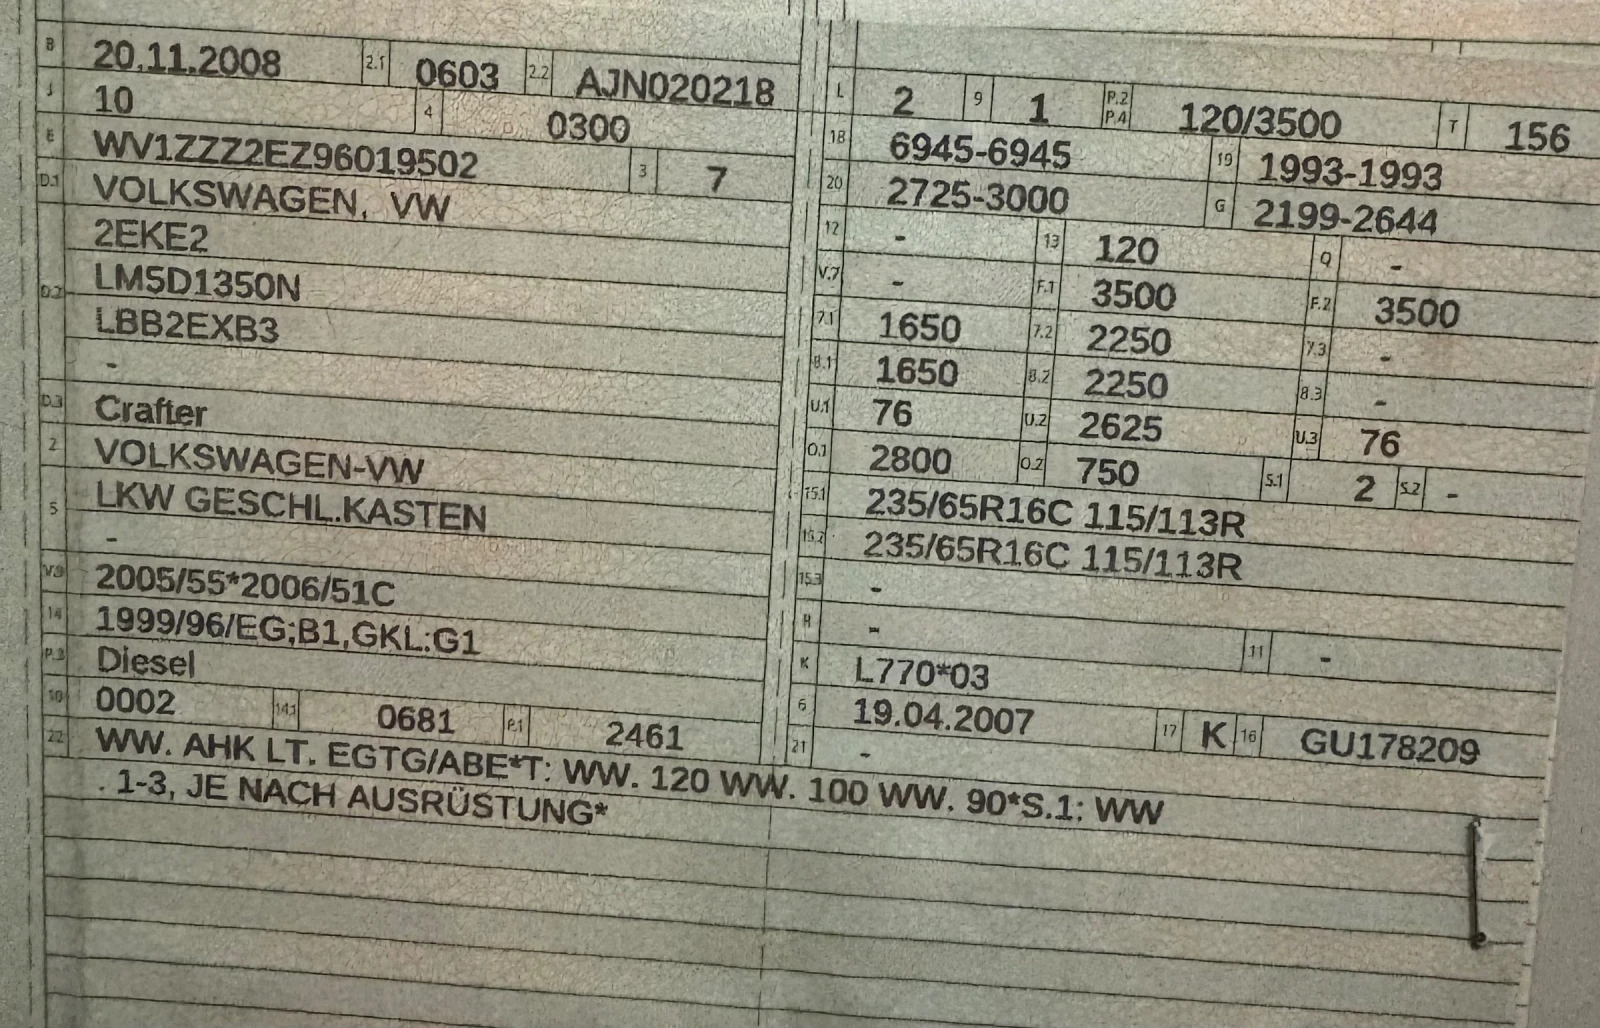 B 20.11.2008 2.1 0603 2.2 AJN020218
J 10 4 0300
E WV1ZZZ2EZ96019502 3 7
D.1 VOLKSWAGEN, VW
2EKE2
D.2 LM5D1350N
LBB2EXB3
-
D.3 Crafter
2 VOLKSWAGEN-VW
5 LKW GESCHL.KASTEN
-
V.9 2005/55*2006/51C
14 1999/96/EG;B1,GKL:G1
P.3 Diesel
10 0002 14.1 0681 P.1 2461
L 2 9 1 P.2 P.4 120/3500 T 156
18 6945-6945 19 1993-1993
20 2725-3000 G 2199-2644
12 - 13 120 Q -
V.7 - F.1 3500 F.2 3500
7.1 1650 7.2 2250 7.3 -
8.1 1650 8.2 2250 8.3 -
U.1 76 U.2 2625 U.3 76
O.1 2800 O.2 750 S.1 2 S.2 -
15.1 235/65R16C 115/113R
15.2 235/65R16C 115/113R
15.3 -
R - 11 -
K L770*03
6 19.04.2007 17 K 16 GU178209
21 -
22 WW. AHK LT. EGTG/ABE*T: WW. 120 WW. 100 WW. 90*S.1: WW
. 1-3, JE NACH AUSRÜSTUNG*